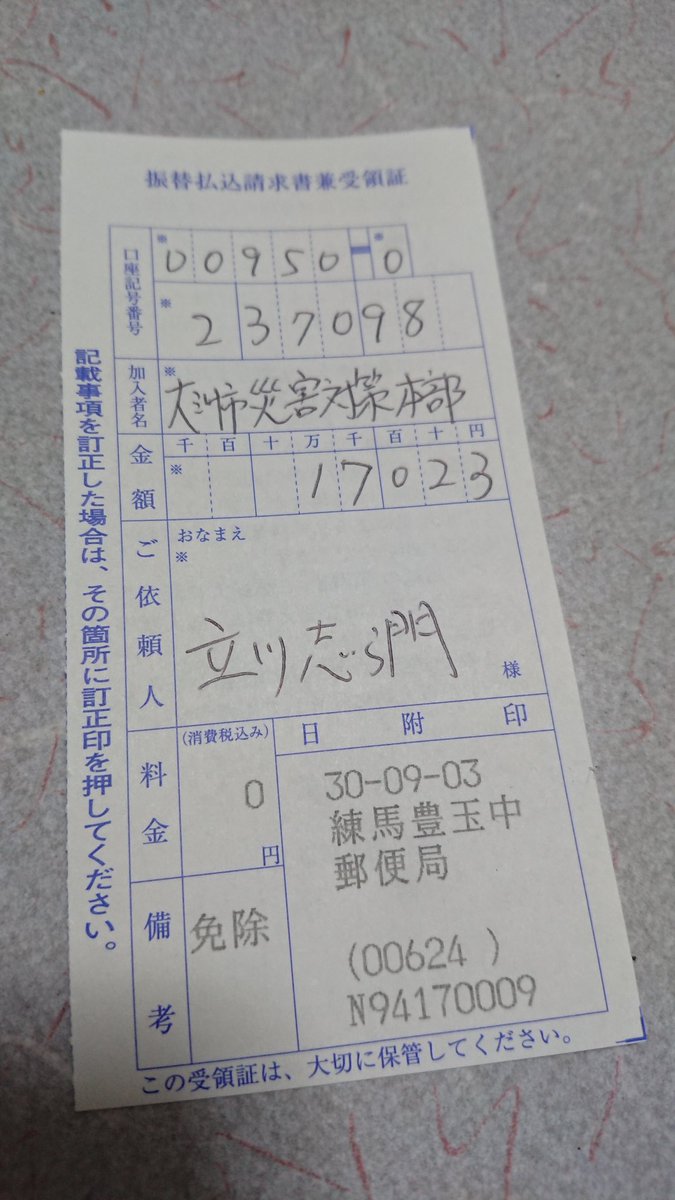 振替払込請求書兼受領証
口座記号番号
※ 00950-※0
※ 237098
加入者名
※ 大洲市災害対策本部
金額
千百十万千百十円
※ 17023
ご依頼人
おなまえ
※
立川志ら門
様
料金
(消費税込み)
0
円
日附印
30-09-03
練馬豊玉中
郵便局
(00624 )
N94170009
備考
免除
この受領証は、大切に保管してください。
記載事項を訂正した場合は、その箇所に訂正印を押してください。